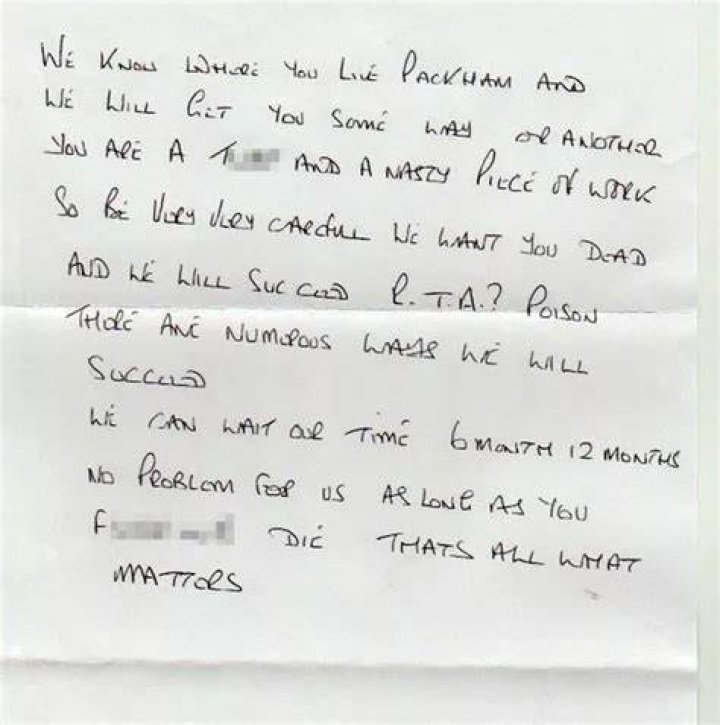 WE KNOW WHERE YOU LIVE PACKHAM AND
WE WILL GET YOU SOME WAY OR ANOTHER
YOU ARE A T AND A NASTY PIECE OF WORK
SO BE VERY VERY CAREFUL WE WANT YOU DEAD
AND WE WILL SUCCEED R.T.A.? POISON
THERE ARE NUMEROUS WAYS WE WILL
SUCCEED
WE CAN WAIT OUR TIME 6 MONTH 12 MONTHS
NO PROBLEM FOR US AS LONG AS YOU
F DIE THATS ALL WHAT
MATTERS